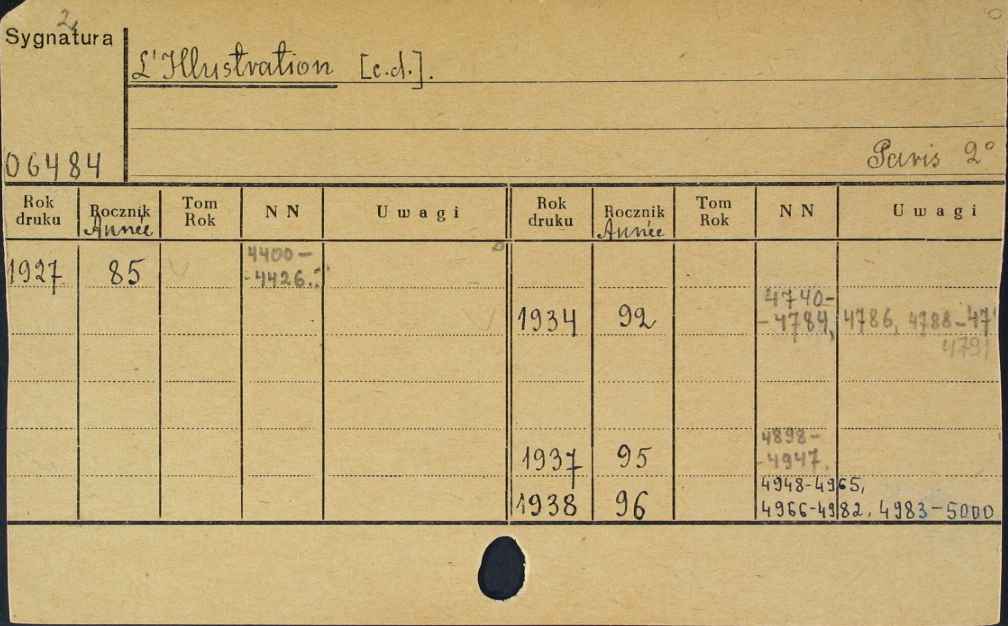 2.
Sygnatura
L'Illustration [c.d.].
06484
Paris 2°
Rok druku Rocznik Année Tom Rok NN Uwagi Rok druku Rocznik Année Tom Rok NN Uwagi
1927 85 4400-
-4426.
1934 92 4740-
-4784, 4786, 4788-47
4791
1937 95 4898-
-4947.
1938 96 4948-4965,
4966-4982, 4983-5000